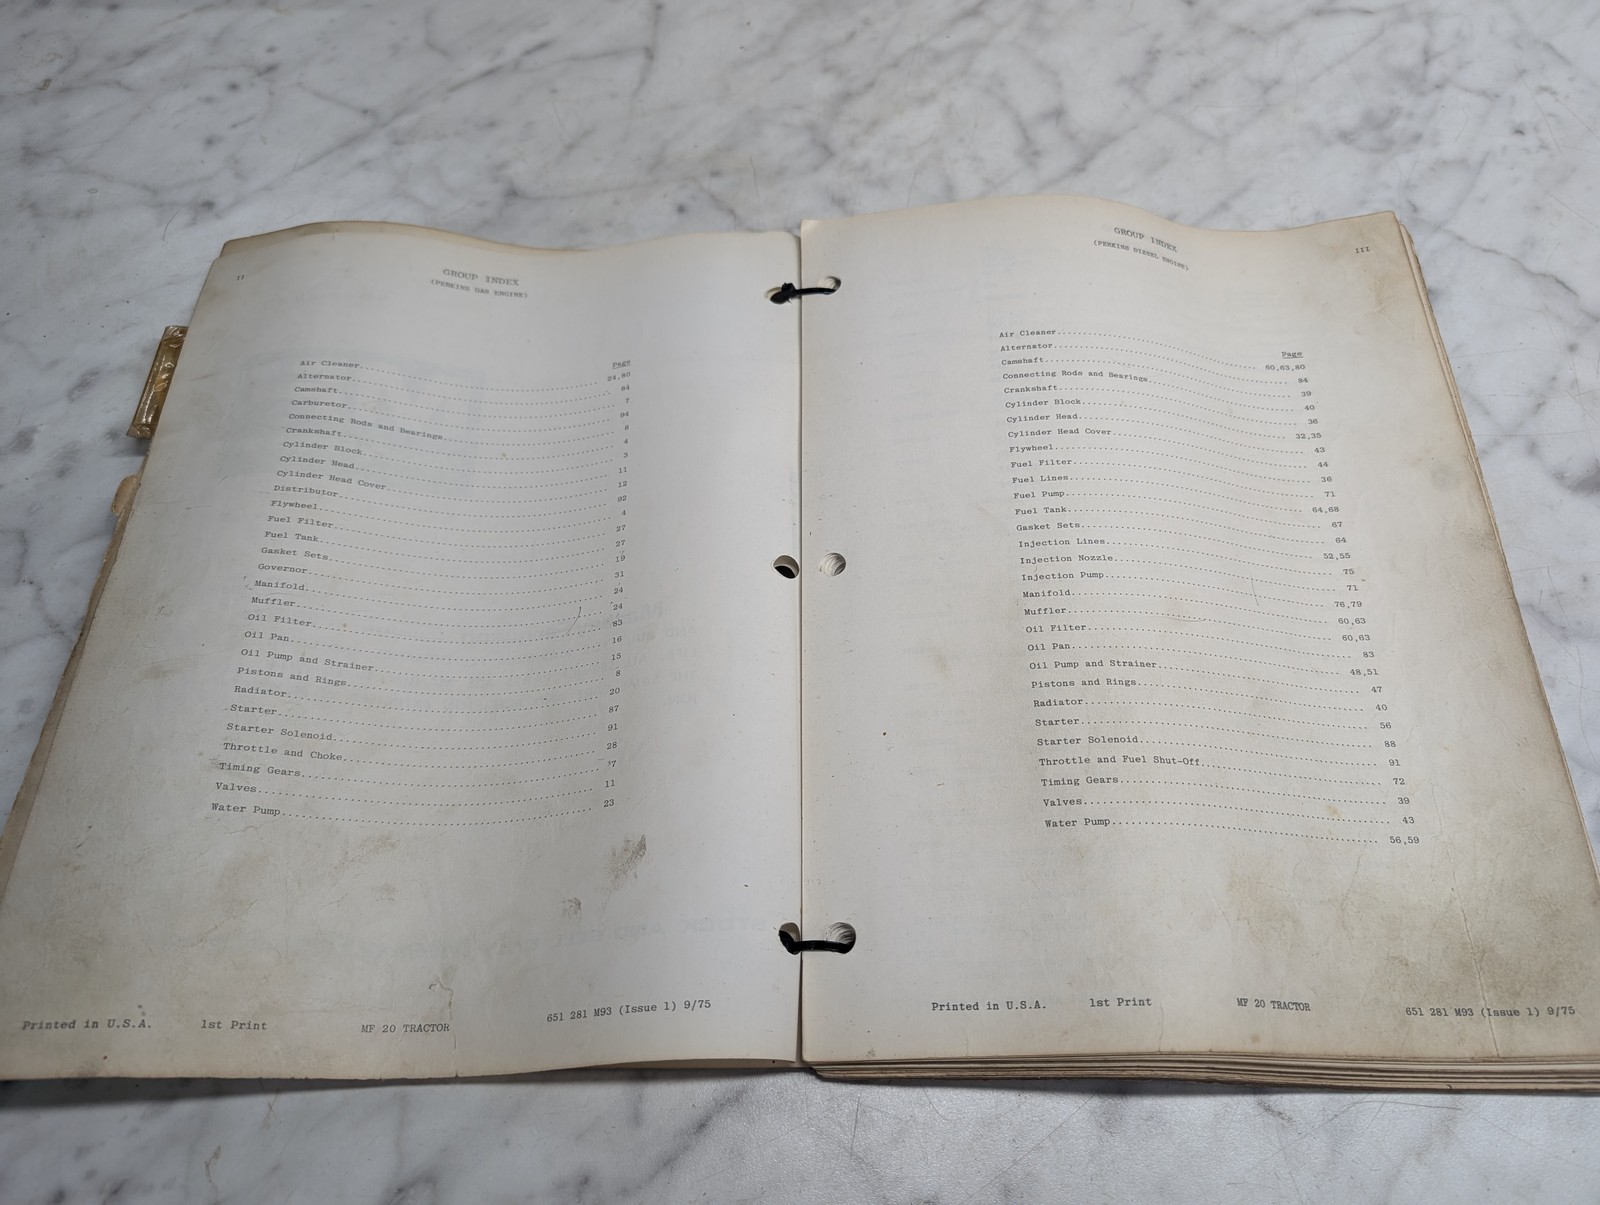 II
GROUP INDEX
(PERKINS GAS ENGINE)
Page
Air Cleaner........................ 24,80
Alternator........................ 84
Camshaft........................ 7
Carburetor........................ 94
Connecting Rods and Bearings........................ 8
Crankshaft........................ 4
Cylinder Block........................ 3
Cylinder Head........................ 11
Cylinder Head Cover........................ 12
Distributor........................ 92
Flywheel........................ 4
Fuel Filter........................ 27
Fuel Tank........................ 27
Gasket Sets........................ 19
Governor........................ 31
Manifold........................ 24
Muffler........................ 24
Oil Filter........................ 83
Oil Pan........................ 16
Oil Pump and Strainer........................ 15
Pistons and Rings........................ 8
Radiator........................ 20
Starter........................ 87
Starter Solenoid........................ 91
Throttle and Choke........................ 28
Timing Gears........................ 7
Valves........................ 11
Water Pump........................ 23
Printed in U.S.A. 1st Print MF 20 TRACTOR 651 281 M93 (Issue 1) 9/75
III
GROUP INDEX
(PERKINS DIESEL ENGINE)
Page
Air Cleaner........................ 60,63,80
Alternator........................ 84
Camshaft........................ 39
Connecting Rods and Bearings........................ 40
Crankshaft........................ 36
Cylinder Block........................ 32,35
Cylinder Head........................ 43
Cylinder Head Cover........................ 44
Flywheel........................ 36
Fuel Filter........................ 71
Fuel Lines........................ 64,68
Fuel Pump........................ 67
Fuel Tank........................ 64
Gasket Sets........................ 52,55
Injection Lines........................ 75
Injection Nozzle........................ 71
Injection Pump........................ 76,79
Manifold........................ 60,63
Muffler........................ 60,63
Oil Filter........................ 83
Oil Pan........................ 48,51
Oil Pump and Strainer........................ 47
Pistons and Rings........................ 40
Radiator........................ 56
Starter........................ 88
Starter Solenoid........................ 91
Throttle and Fuel Shut-Off........................ 72
Timing Gears........................ 39
Valves........................ 43
Water Pump........................ 56,59
Printed in U.S.A. 1st Print MF 20 TRACTOR 651 281 M93 (Issue 1) 9/75